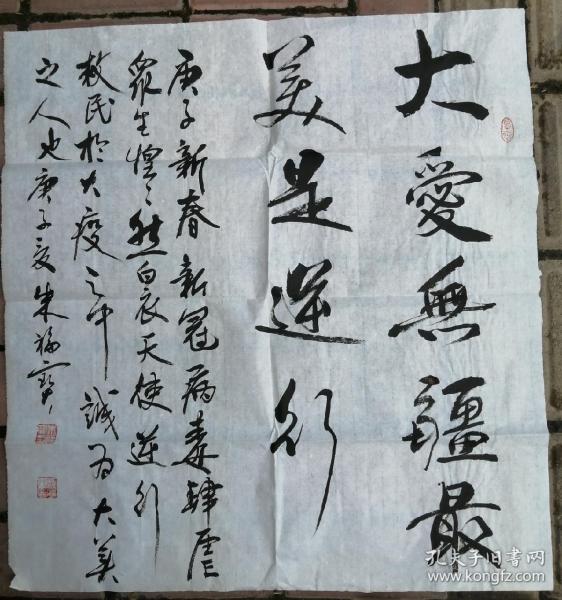 大愛無疆最
美是逆行
庚子新春新冠病毒肆虐
眾生惶々然白衣天使逆行
救民於大疫之中誠為大美
之人也庚子夏朱
孔夫子旧书网
www.kongfz.com